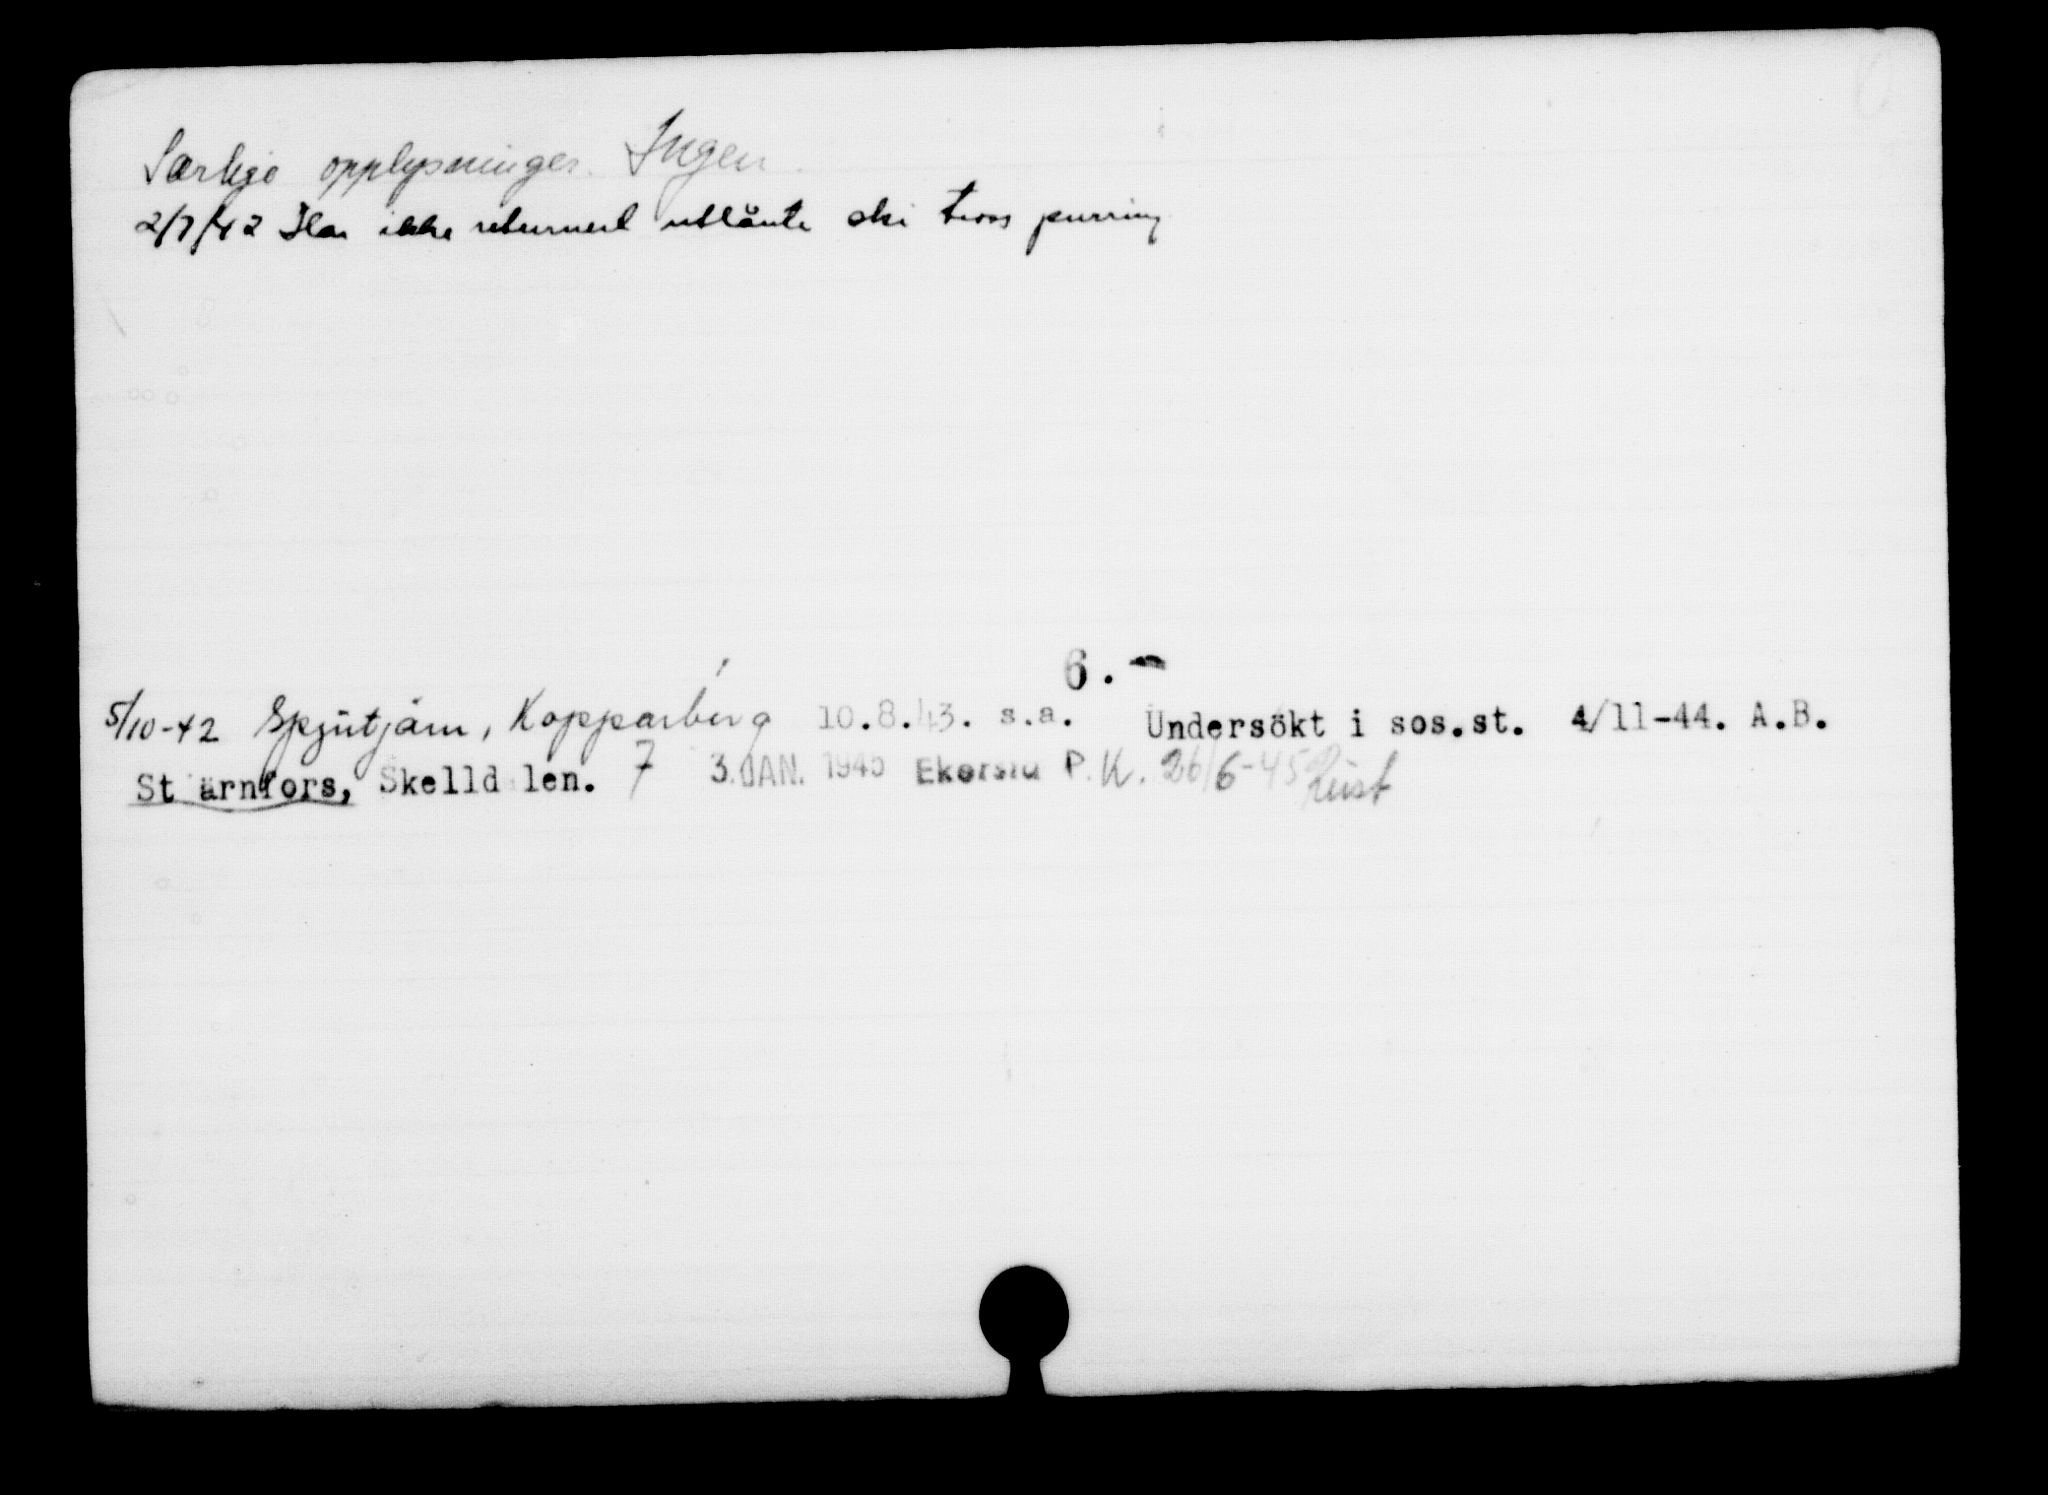 Særlige opplysninger. Ingen.
2/7/42 Har ikke returnert utlånte ski tross purring
6.-
5/10-42 Spjutjärn, Kopparberg 10.8.43. s.a. Undersökt i sos.st. 4/11-44. A.B.
St ärnfors, Skelld len. 7 3. JAN. 1945 P.K. 26/6-45